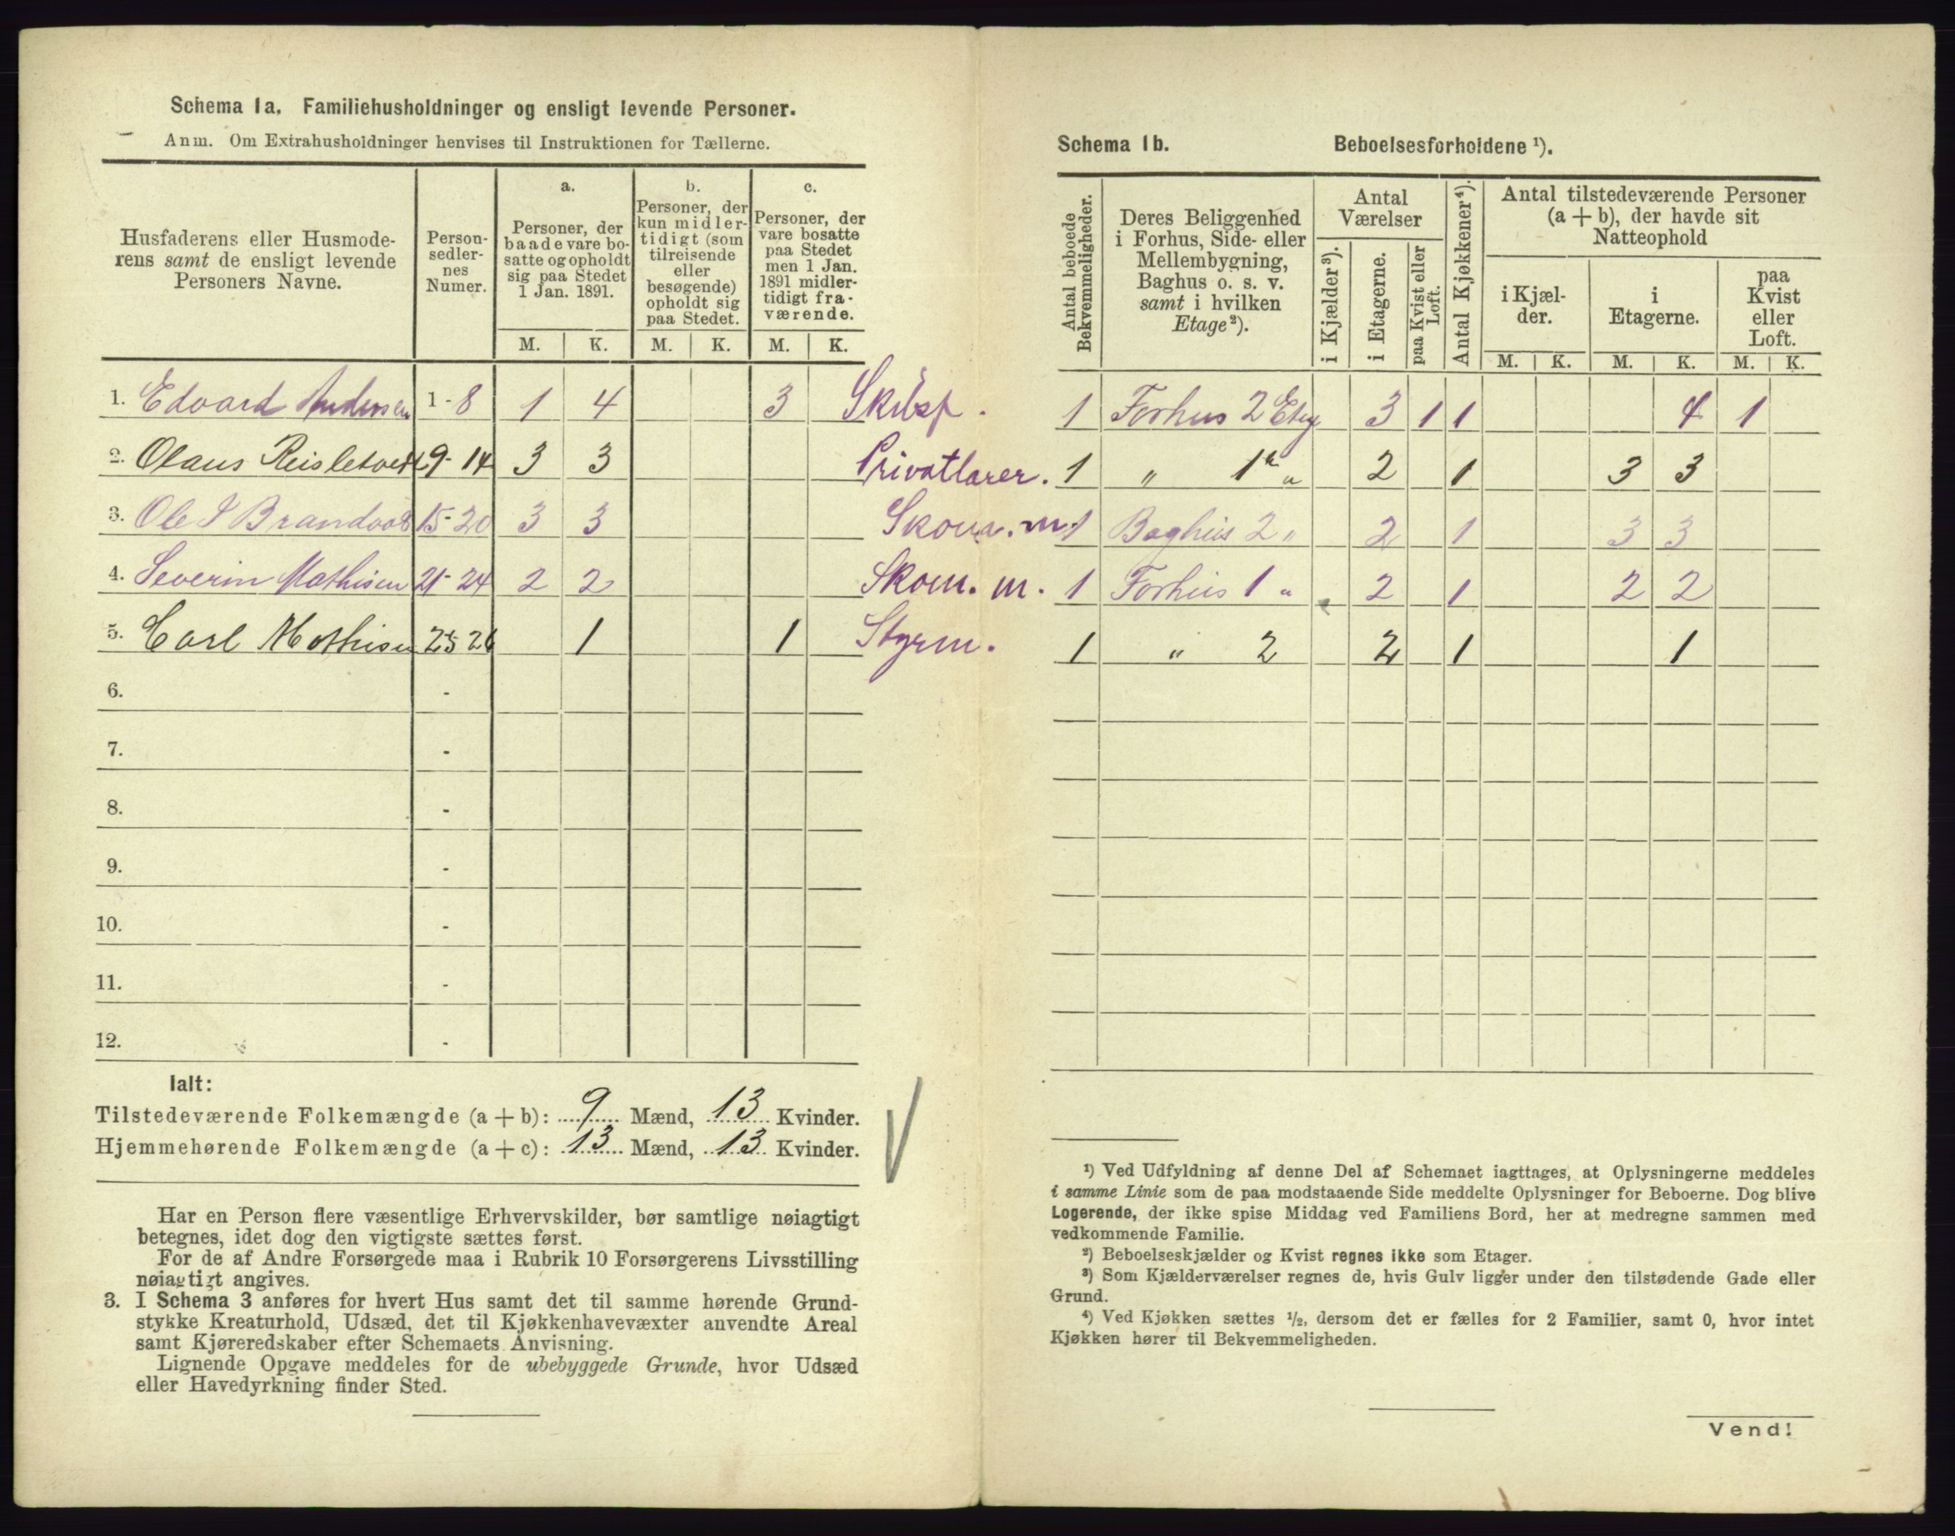 Schema 1a. Familiehusholdninger og ensligt levende Personer.
Anm. Om Extrahusholdninger henvises til Instruktionen for Tællerne.
Husfaderens eller Husmoderens samt de ensligt levende Personers Navne.
Personsedlernes Numer.
a.
Personer, der baade vare bosatte og opholdt sig paa Stedet 1 Jan. 1891.
b.
Personer, der kun midlertidigt (som tilreisende eller besøgende) opholdt sig paa Stedet.
c.
Personer, der vare bosatte paa Stedet men 1 Jan. 1891 midlertidigt fraværende.
M. K. M. K. M. K.
1. Edvard Andersen 1-8 1 4 3 Skibsf.
2. Olaus 9-14 3 3 Privatlærer.
3. Ole 15-20 3 3 Skom. m.
4. Severin Mathisen 21-24 2 2 Skom. m.
5. Carl Mathisen 25-26 1 1 Styrm.
6. -
7. -
8. -
9. -
10. -
11. -
12. -
Ialt:
Tilstedeværende Folkemængde (a + b): 9 Mænd, 13 Kvinder.
Hjemmehørende Folkemængde (a + c): 13 Mænd, 13 Kvinder.
Har en Person flere væsentlige Erhvervskilder, bør samtlige nøiagtigt
betegnes, idet dog den vigtigste sættes først.
For de af Andre Forsørgede maa i Rubrik 10 Forsørgerens Livsstilling
nøiagtigt angives.
3. I Schema 3 anføres for hvert Hus samt det til samme hørende Grund-
stykke Kreaturhold, Udsæd, det til Kjøkkenhavevæxter anvendte Areal
samt Kjøreredskaber efter Schemaets Anvisning.
Lignende Opgave meddeles for de ubebyggede Grunde, hvor Udsæd
eller Havedyrkning finder Sted.
Schema 1b. Beboelsesforholdene ¹).
Antal beboede Bekvemmeligheder.
Deres Beliggenhed i Forhus, Side- eller Mellembygning, Baghus o. s. v. samt i hvilken Etage²).
Antal Værelser
i Kjælder³).
i Etagerne.
paa Kvist eller Loft.
Antal Kjøkkener⁴).
Antal tilstedeværende Personer (a + b), der havde sit Natteophold
i Kjælder.
i Etagerne.
paa Kvist eller Loft.
M. K. M. K. M. K.
1 Forhus 2 Etg 3 1 1 4 1
1 " 1 " 2 1 3 3
1 Baghus 2 " 2 1 3 3
1 Forhus 1 " 2 1 2 2
1 " 2 2 1 1
¹) Ved Udfyldning af denne Del af Schemaet iagttages, at Oplysningerne meddeles
i samme Linie som de paa modstaaende Side meddelte Oplysninger for Beboerne. Dog blive
Logerende, der ikke spise Middag ved Familiens Bord, her at medregne sammen med
vedkommende Familie.
²) Beboelseskjælder og Kvist regnes ikke som Etager.
³) Som Kjælderværelser regnes de, hvis Gulv ligger under den tilstødende Gade eller
Grund.
⁴) Ved Kjøkken sættes ½, dersom det er fælles for 2 Familier, samt 0, hvor intet
Kjøkken hører til Bekvemmeligheden.
Vend!